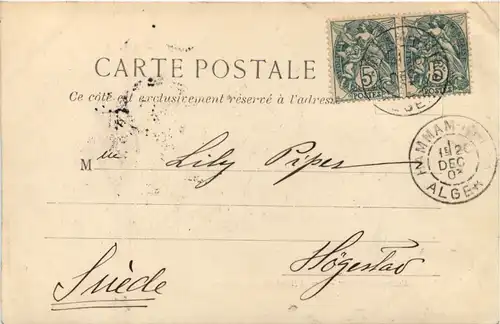 CARTE POSTALE
Ce côté est exclusivement réservé à l'adresse
5c 5c
POSTES POSTES
HAMMAM-
DEC
ALGER
Mlle Lily Piper
Högestad
Suède